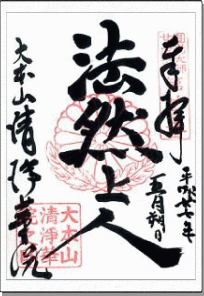 奉拝
平成廿七年
五月朔日
法然上人
大本山清浄華院
大本山
清浄華
院之印